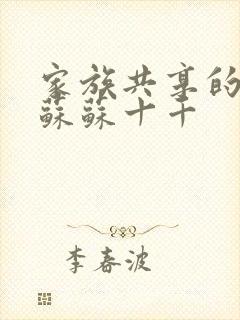 家族共享的
蘇蘇十十
李春波